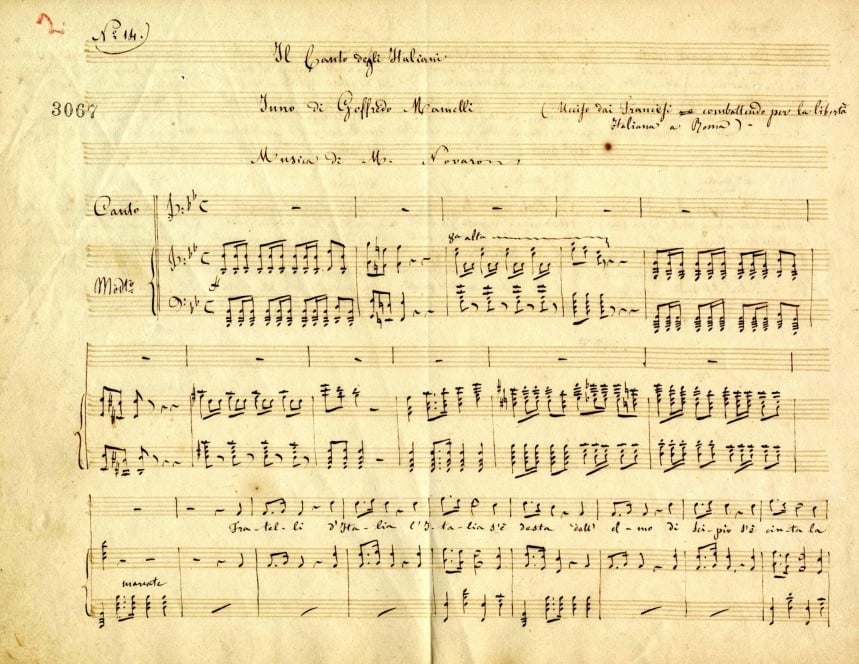 2
Nº 14.
Il Canto degli Italiani
3067
Inno di Goffredo Mamelli (Ucciso dai Francesi combattendo per la libertà
Italiana a Roma) -
Musica di M. Novaro
Canto
8a alta
Modto
Fra-tel-li d'Ita-lia l'I-ta-lia s'è desta dell' el-mo di Sci-pio s'è cin-ta la
marcate